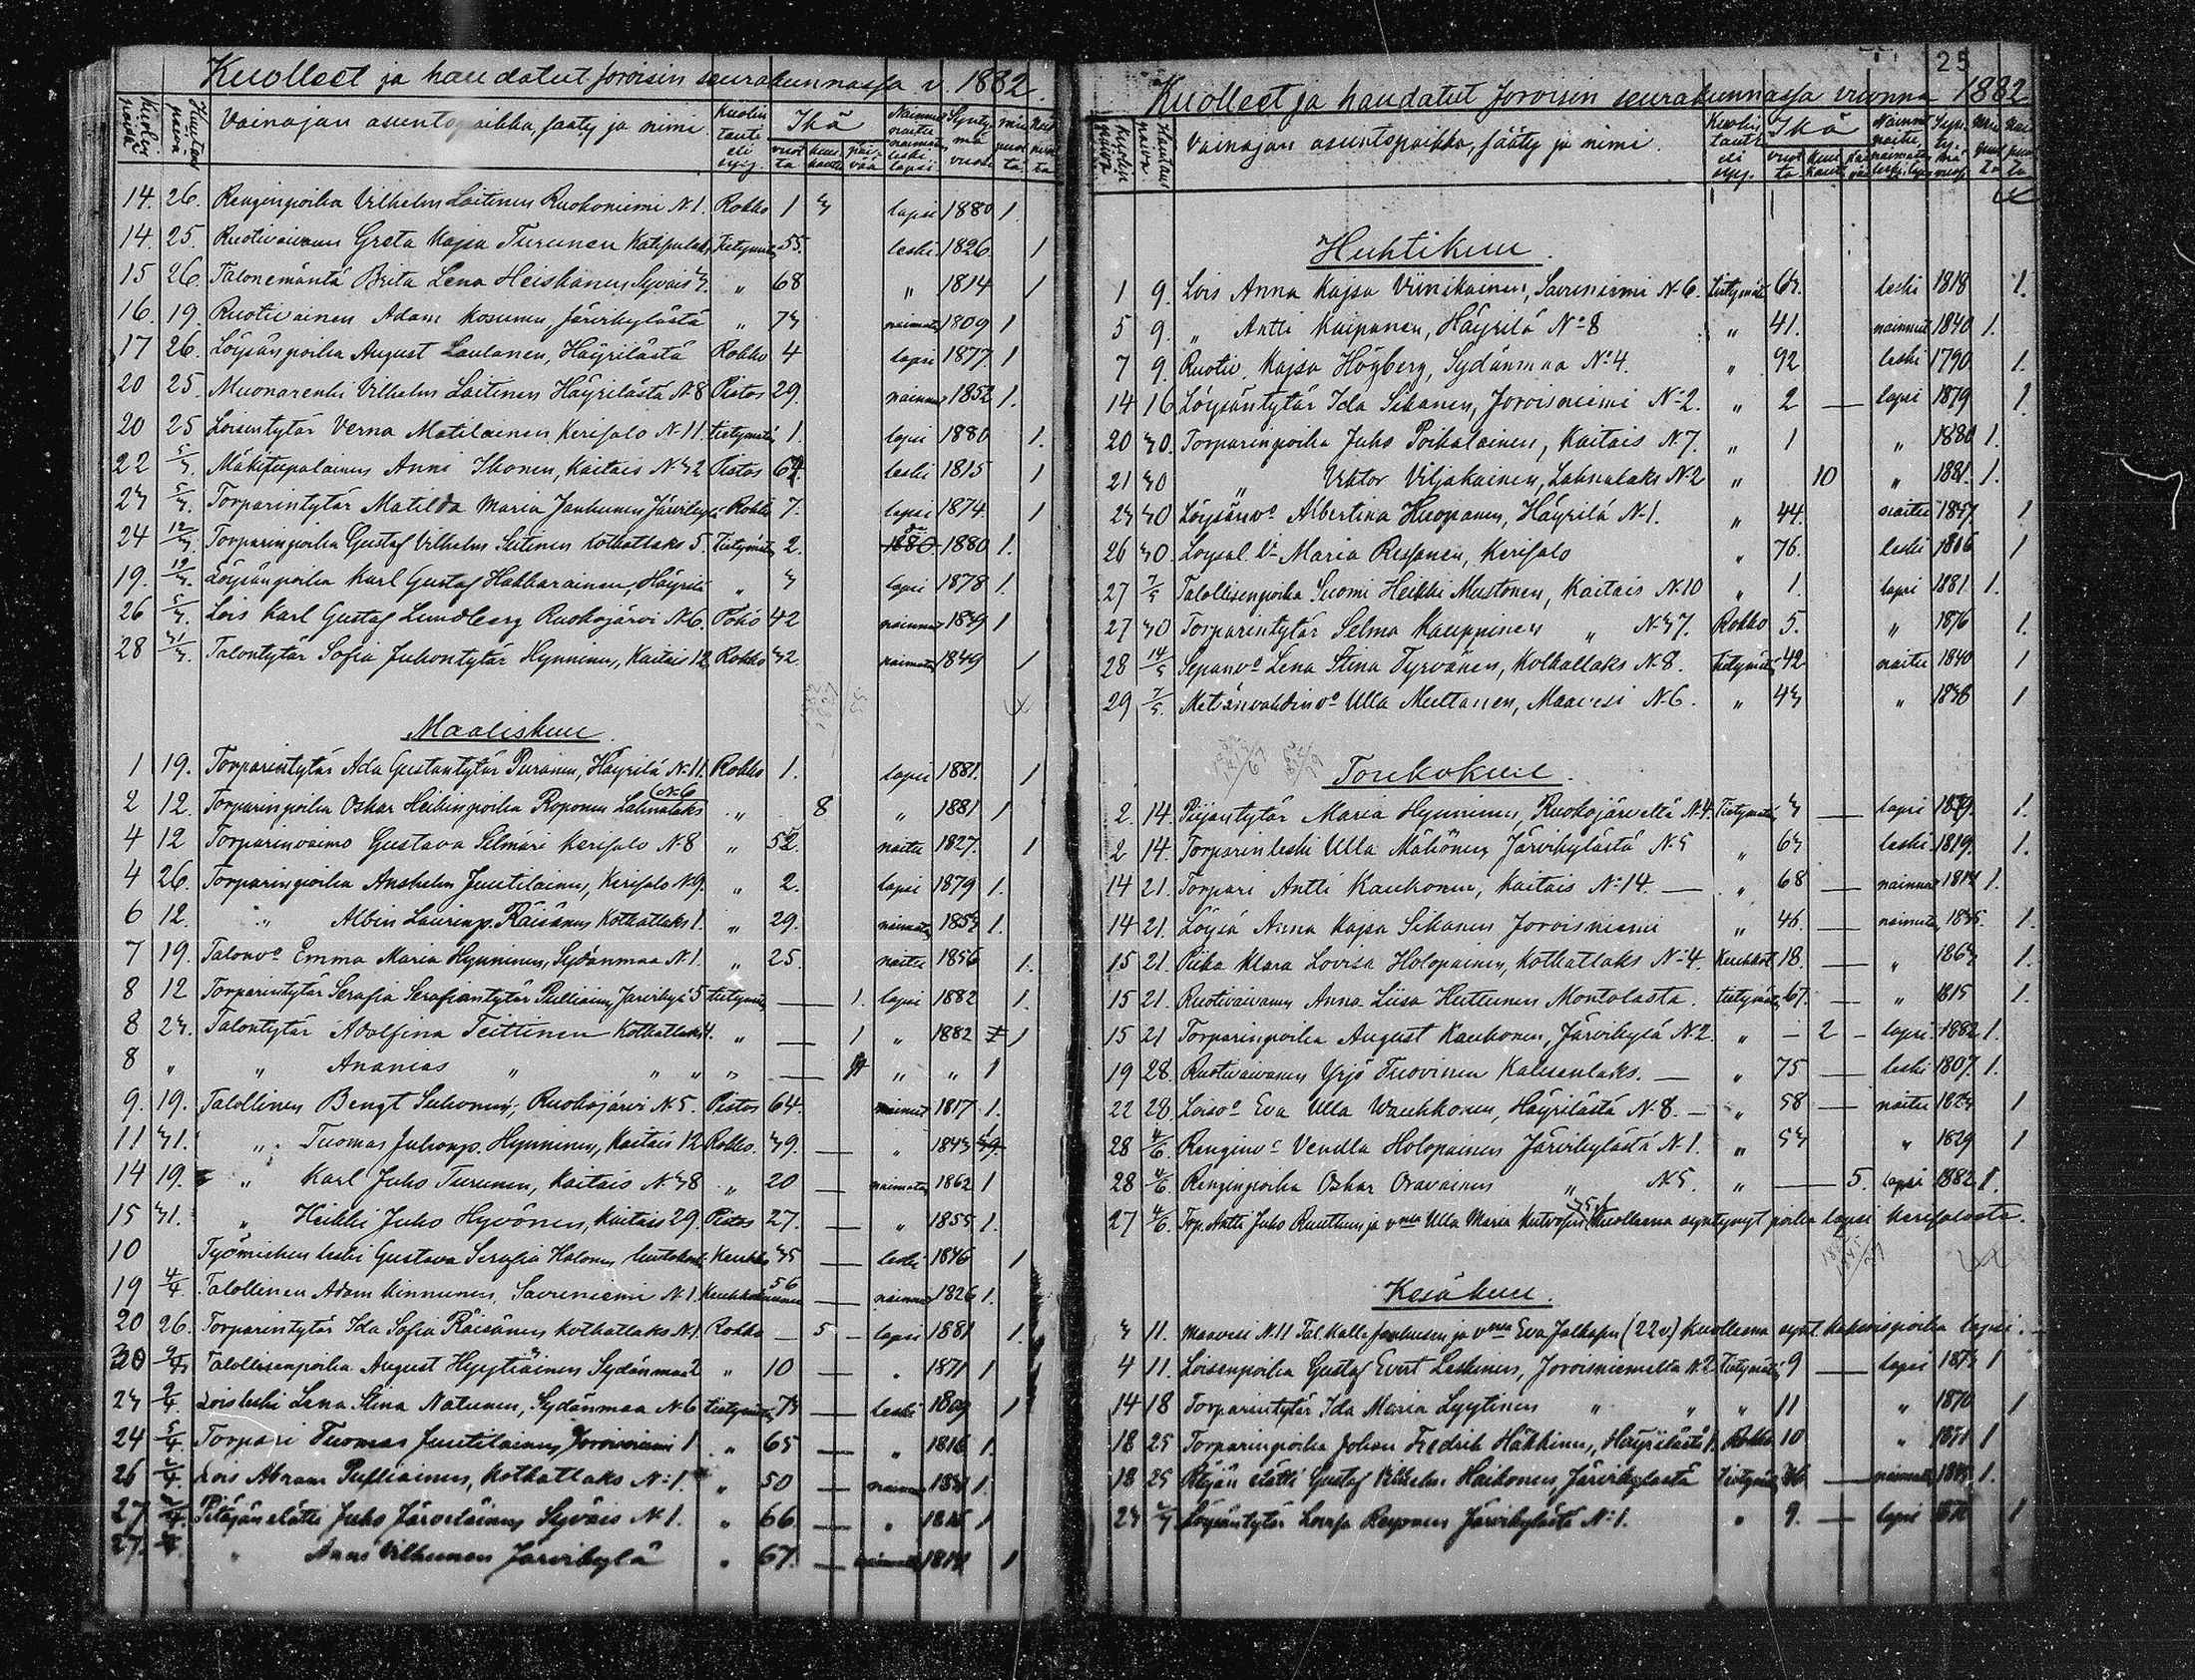 Kuolleet ja haudatut Joroisin seurakunnassa v. 1882.
Kuolin päivä Hautaus päivä Vainajan asuntopaikka, sääty ja nimi. Kuolin tauti eli syy. Ikä vuotta kuukautta päivää Nainut naitu naimaton leski lapsi Synty mä vuosi
14. 26. Renginpoika Vilhelm Laitinen Ruokoniemi N.1. Rokko 1 3 lapsi 1880 1.
14. 25. Ruotivaivanen Greta Kajsa Turunen Tietymätä 55. leski 1826. 1
15 26. Talonemäntä Brita Lena Heiskanen Syväis 3. " 68 " 1814 1
16. 19. Ruotivainen Adam Kosunen Järvikylästä " 73 naimaton 1809 1
17 26. Löysänpoika August Laulanen, Häyrilästä Rokko 4 lapsi 1877. 1
20 25. Muonarenki Vilhelm Laitinen Häyrilästä N.8 Pistos 29. nainut 1852 1.
20 25 Loisentytär Verna Matilainen Kerisalo N.11. tietymätä 1. lapsi 1880 1.
22 5/3. Mäkitupalainen Anni Ikonen, Kaitais N.32 Pistos 67. leski 1815 1
23 5/3. Torparintytär Matilda Maria Janhunen Järvikylä Rokko 7. lapsi 1874. 1
24 12/3. Torparinpoika Gustaf Vilhelm Kotkatlaks 5. Tietymätä 2. 1880 1880 1.
19. 12/3. Löysänpoika Karl Gustaf Hakkarainen, Häyrilä " 3 lapsi 1878 1.
26 5/3. Lois Karl Gustaf Lundberg Ruokojärvi N.6. Pöhö 42 nainut 1839 1
28 31/3. Talontytär Sofia Juhontytär Hynninen, Kaitais 12. Rokko 32. naimaton 1849 1
Maaliskuu.
1 19. Torparintytär Ada Gustantytär Puranen, Häyrilä N.11. Rokko 1. lapsi 1881. 1
2 12. Torparinpoika Oskar Heikinpoika Roponen Lahnalaks N.6 " 8 " 1881 1
4 12 Torparinvaimo Gustava Silmäri Kerisalo N.8 " 52. naitu 1827. 1
4 26. Torparinpoika Anshelm Juutilainen, Kerisalo N.9. " 2. lapsi 1879 1.
6 12. " Albin Laurinp. Räisänen Kotkatlaks 1. " 29. naimaton 1853 1.
7 19. Talonvo Emma Maria Hynninen, Sydänmaa N.1. " 25. naitu 1856 1.
8 12 Torparintytär Serafia Serafiantytär Pulliainen Järvikylä 5 tietymätä — 1. lapsi 1882 1.
8 23. Talontytär Adolfina Teittinen Kotkatlaks 4. " — 1 " 1882 1
8 " " Ananias " " " " — " " 1
9. 19. Talollinen Bengt Suhonen, Ruokojärvi N.5. Pistos 64. nainut 1817 1.
11 31. " Tuomas Juhonp. Hynninen, Kaitais 12 Rokko. 39. — " 1843
14 19. " Karl Juho Turunen, Kaitais N.38 " 20 — naimaton 1862 1
15 31. " Heikki Juho Hyvönen, Kaitais 29. Pistos 27. — " 1855 1.
10 Työmiehen leski Gustava Serafia Halonen Keuhko 35 — leski 1846 1
19 4/4. Talollinen Adam Kinnunen, Savuniemi N.1. 56 — nainut 1826 1.
20 26. Torparintytär Ida Sofia Räisänen Kotkatlaks N.1. Rokko — 5 — lapsi 1881 1.
20 Talollisenpoika August Hyytiäinen Sydänmaa 2 " 10 — " 1871 1
23 9/4. Loisleski Lena Stina Natunen, Sydänmaa N.6 tietymätä 73 — leski 1809 1
24 5/4. Torpari Tuomas Juutilainen Joroisniemi 1 " 65 — " 1816 1.
26 Lois Abram Pulliainen, Kotkatlaks N:1. " 50 — nainut 1831 1.
27 Pitäjänelätti Juho Järveläinen Syväis N.1. " 66 — " 1816 1
27. " Anni Vilhunen Järvikylä " 67. — 1
25
Kuolleet ja haudatut Joroisin seurakunnassa vuonna 1882
Kuolin päivä Hautaus päivä Vainajan asuntopaikka, sääty ja nimi. Kuolin tauti eli syy. Ikä vuotta
Huhtikuu.
1 9. Lois Anna Kajsa Viinikainen, Savuniemi N.6. tietymätä 63. leski 1818 1.
5 9. " Antti Kaipanen, Häyrilä No 8 " 41. nainut 1840 1.
7 9. Ruotiv. Kajsa Högberg, Sydänmaa No 4. " 92 leski 1790. 1.
14 16 Löysäntytär Ida Sikanen, Joroisniemi No 2. " 2 — lapsi 1879 1.
20 30. Torparinpoika Juho Poikalainen, Kaitais N.7. " 1 " 1880 1.
21 30 " Viktor Viljakainen, Lahnalaks N.2 " 10 " 1881. 1.
23 30 Löysänvo Albertina Huopanen, Häyrilä N.1. " 44. naitu 1837. 1
26 30. Löysäl. Maria Ressanen, Kerisalo " 76. leski 1806 1
27 7/5 Talollisenpoika Suomi Heikki Mustonen, Kaitais N.10 " 1. lapsi 1881 1.
27 30 Torparintytär Selma Kauppinen " N.37. Rokko 5. " 1876 1.
28 14/5 Sepanvo Lena Stina Tyrvänen, Kotkatlaks N.8. tietymätä 42 naitu 1840 1
29 7/5. Metsänvahdinvo Ulla Multanen, Maavesi N.6. " 43 " 1838 1
Toukokuu.
2. 14. Piijantytär Maria Hynninen, Ruokojärveltä N.4. Tietymätä 3 — lapsi 1879. 1.
2 14. Torparinleski Ulla Mähönen Järvikylästä N.5 " 63 leski 1819. 1.
14 21. Torpari Antti Kauhonen, Kaitais No 14. — " 68 — nainut 1814 1.
14 21. Löysä Anna Kajsa Sikanen Joroisniemi " 46. — 1.
15 21. Piika Klara Lovisa Holopainen, Kotkatlaks No 4. 18. — " 1863 1.
15 21. Ruotivaivanen Anna Liisa Huttunen Montolasta. tietymätä 67. — " 1815 1.
15 21 Torparinpoika August Kauhonen, Järvikylä N.2. " — 2 — lapsi 1882 1.
19 28. Ruotivaivanen Yrjö Tuovinen — " 75 — leski 1807. 1.
22 28. Loisvo Eva Ulla Wauhkonen, Häyrilästä N.8. — " 58 — naitu 1823 1
28 4/6. Renginvo Vendla Holopainen Järvikylästä N.1. " 53 " 1829 1
28 4/6. Renginpoika Oskar Oravainen " N.5. " — 5. lapsi 1882 1.
27 4/6. Trp. Antti Juho Ruuttunen ja vmon Ulla Maria Kutvosen Kuolleena syntynyt poika lapsi Kerisalosta.
Kesäkuu.
3 11. Maavesi N.11 Tal. Kalle Janhusen ja vmon Eva Jalkasen (22 v.) Kuolleena synt. lapsi.
4 11. Loisenpoika Gustaf Evert Leskinen, Joroisniemeltä N.2 Tietymätä 9 — lapsi 1873 1
14 18 Torparintytär Ida Maria Lyytinen " " " 11 " 1870 1
18 25 Torparinpoika Johan Fredrik Häkkinen, Häyrilästä 1. Rokko 10 " 1871 1
18 25 Pitäjän elätti Gustaf Vilhelm Haikonen, Järvikylästä Tietymätä — 1.
23 Löysäntytär Lovisa Reponen Järvikylästä N:1. " 9. — lapsi 1